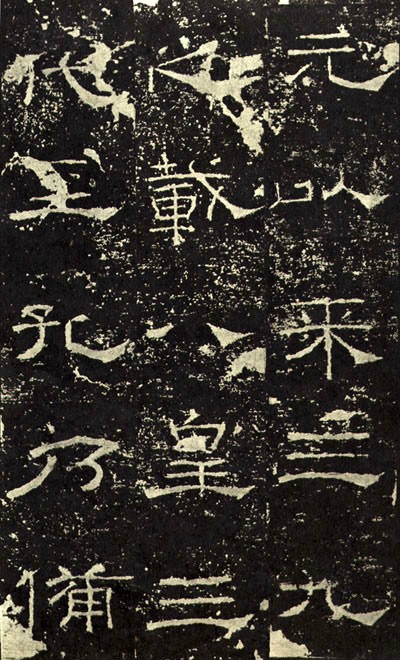 元以来三九
之載八皇三
代至孔乃備